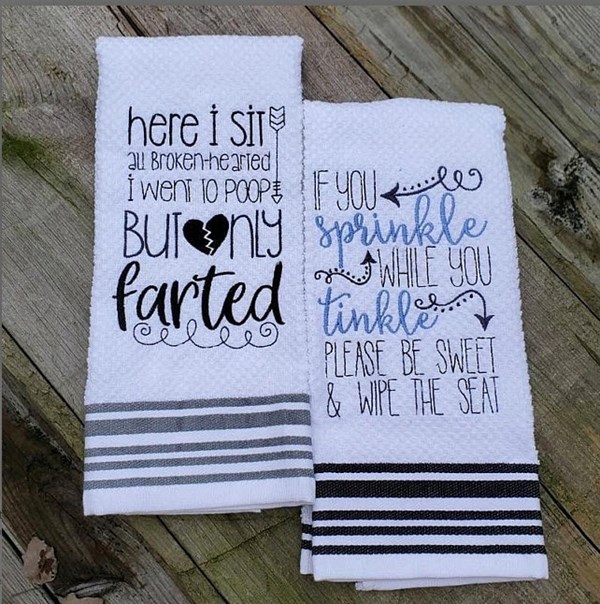 here i sit
all Broken-hearted
i went to poop
BUT ONLY
farted
IF YOU
sprinkle
WHILE YOU
tinkle
PLEASE BE SWEET
& WIPE THE SEAT